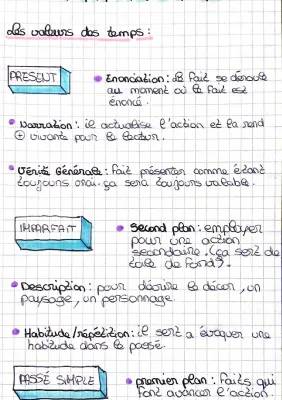 Les valeurs des temps :
PRESENT
• Énonciation : le fait se déroule
au moment où le fait est
énoncé.
• Narration : il actualise l'action et la rend
⊕ vivante pour le lecteur.
• Vérité Générale : fait présenter comme étant
toujours vrai. ça sera toujours valable.
IMPARFAIT
• Second plan : employer
pour une action
secondaire. (ça sert de
toile de fond).
• Description : pour décrire le décor, un
paysage, un personnage.
• Habitude/répétition : il sert a évoquer une
habitude dans le passé.
PASSÉ SIMPLE
• premier plan : Faits qui
font avancer l'action.